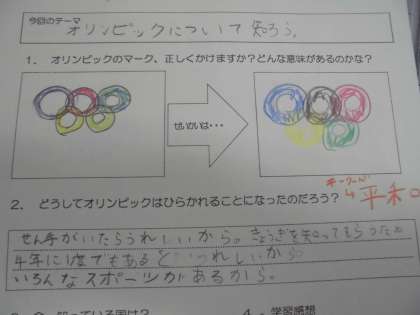 今回のテーマ
オリンピックについて知ろう。
1．オリンピックのマーク、正しくかけますか？どんな意味があるのかな？
せいかいは・・・
2．どうしてオリンピックはひらかれることになったのだろう？
キーワード
↳平和。
せん手がいたらうれしいから。きょうぎを知ってもらうため
4年に1度でもあると うれしいから
いろんなスポーツがあるから。
知っている国は？
4．学習感想